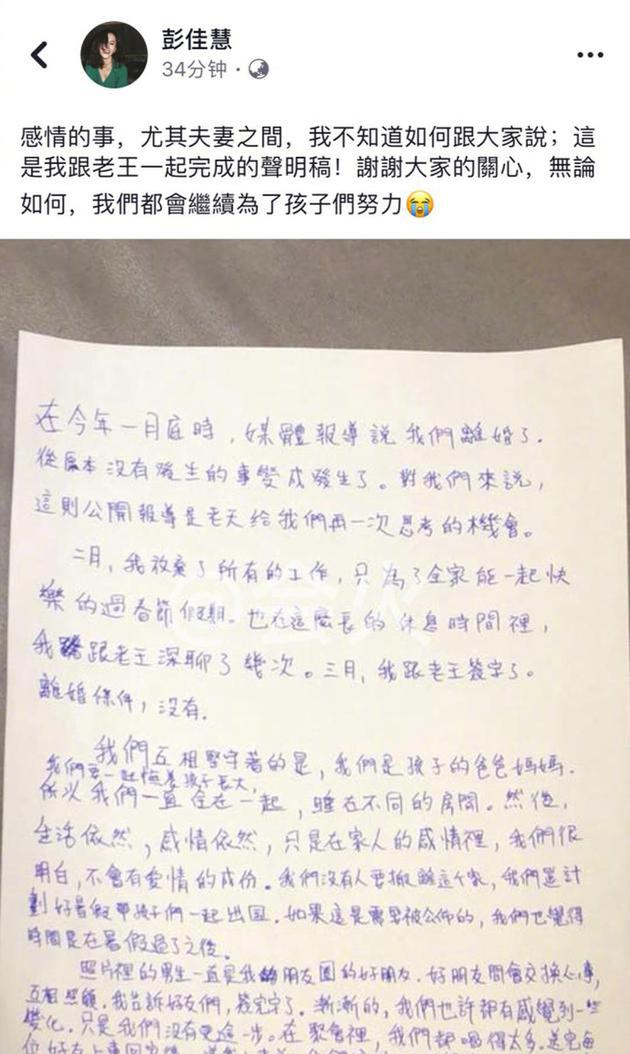 彭佳慧
34分钟 ·
感情的事，尤其夫妻之間，我不知道如何跟大家說；這
是我跟老王一起完成的聲明稿！謝謝大家的關心，無論
如何，我們都會繼續為了孩子們努力😭
在今年一月底時，媒體報導說我們離婚了.
從原本沒有發生的事變成發生了。對我們來說，
這則公開報導是老天給我們再一次思考的機會。
二月，我放棄了所有的工作，只為了全家能一起快
樂的過春節假期。也在這麼長的休息時間裡，
我跟老王深聊了幾次。三月，我跟老王簽字了。
離婚條件，沒有.
我們互相堅守著的是，我們是孩子的爸爸媽媽.
我們要一起陪著孩子長大，
所以我們一直住在一起，睡在不同的房間。然後，
生活依然，感情依然，只是在家人的感情裡，我們很
明白，不會有愛情的成份。我們沒有人要搬離這个家，我們還計
劃好暑假帶孩子們一起出国。如果這是需要被公佈的，我們也覺得
時間是在暑假過了之後。
照片裡的男生一直是我的朋友圈的好朋友. 好朋友間會交換心事，
互相照顧. 我告訴好友們，簽完字了. 漸漸的，我們也許都有感覺到一些
變化. 只是我們沒有更進一步。在聚會裡，我們都喝得太多. 送完每